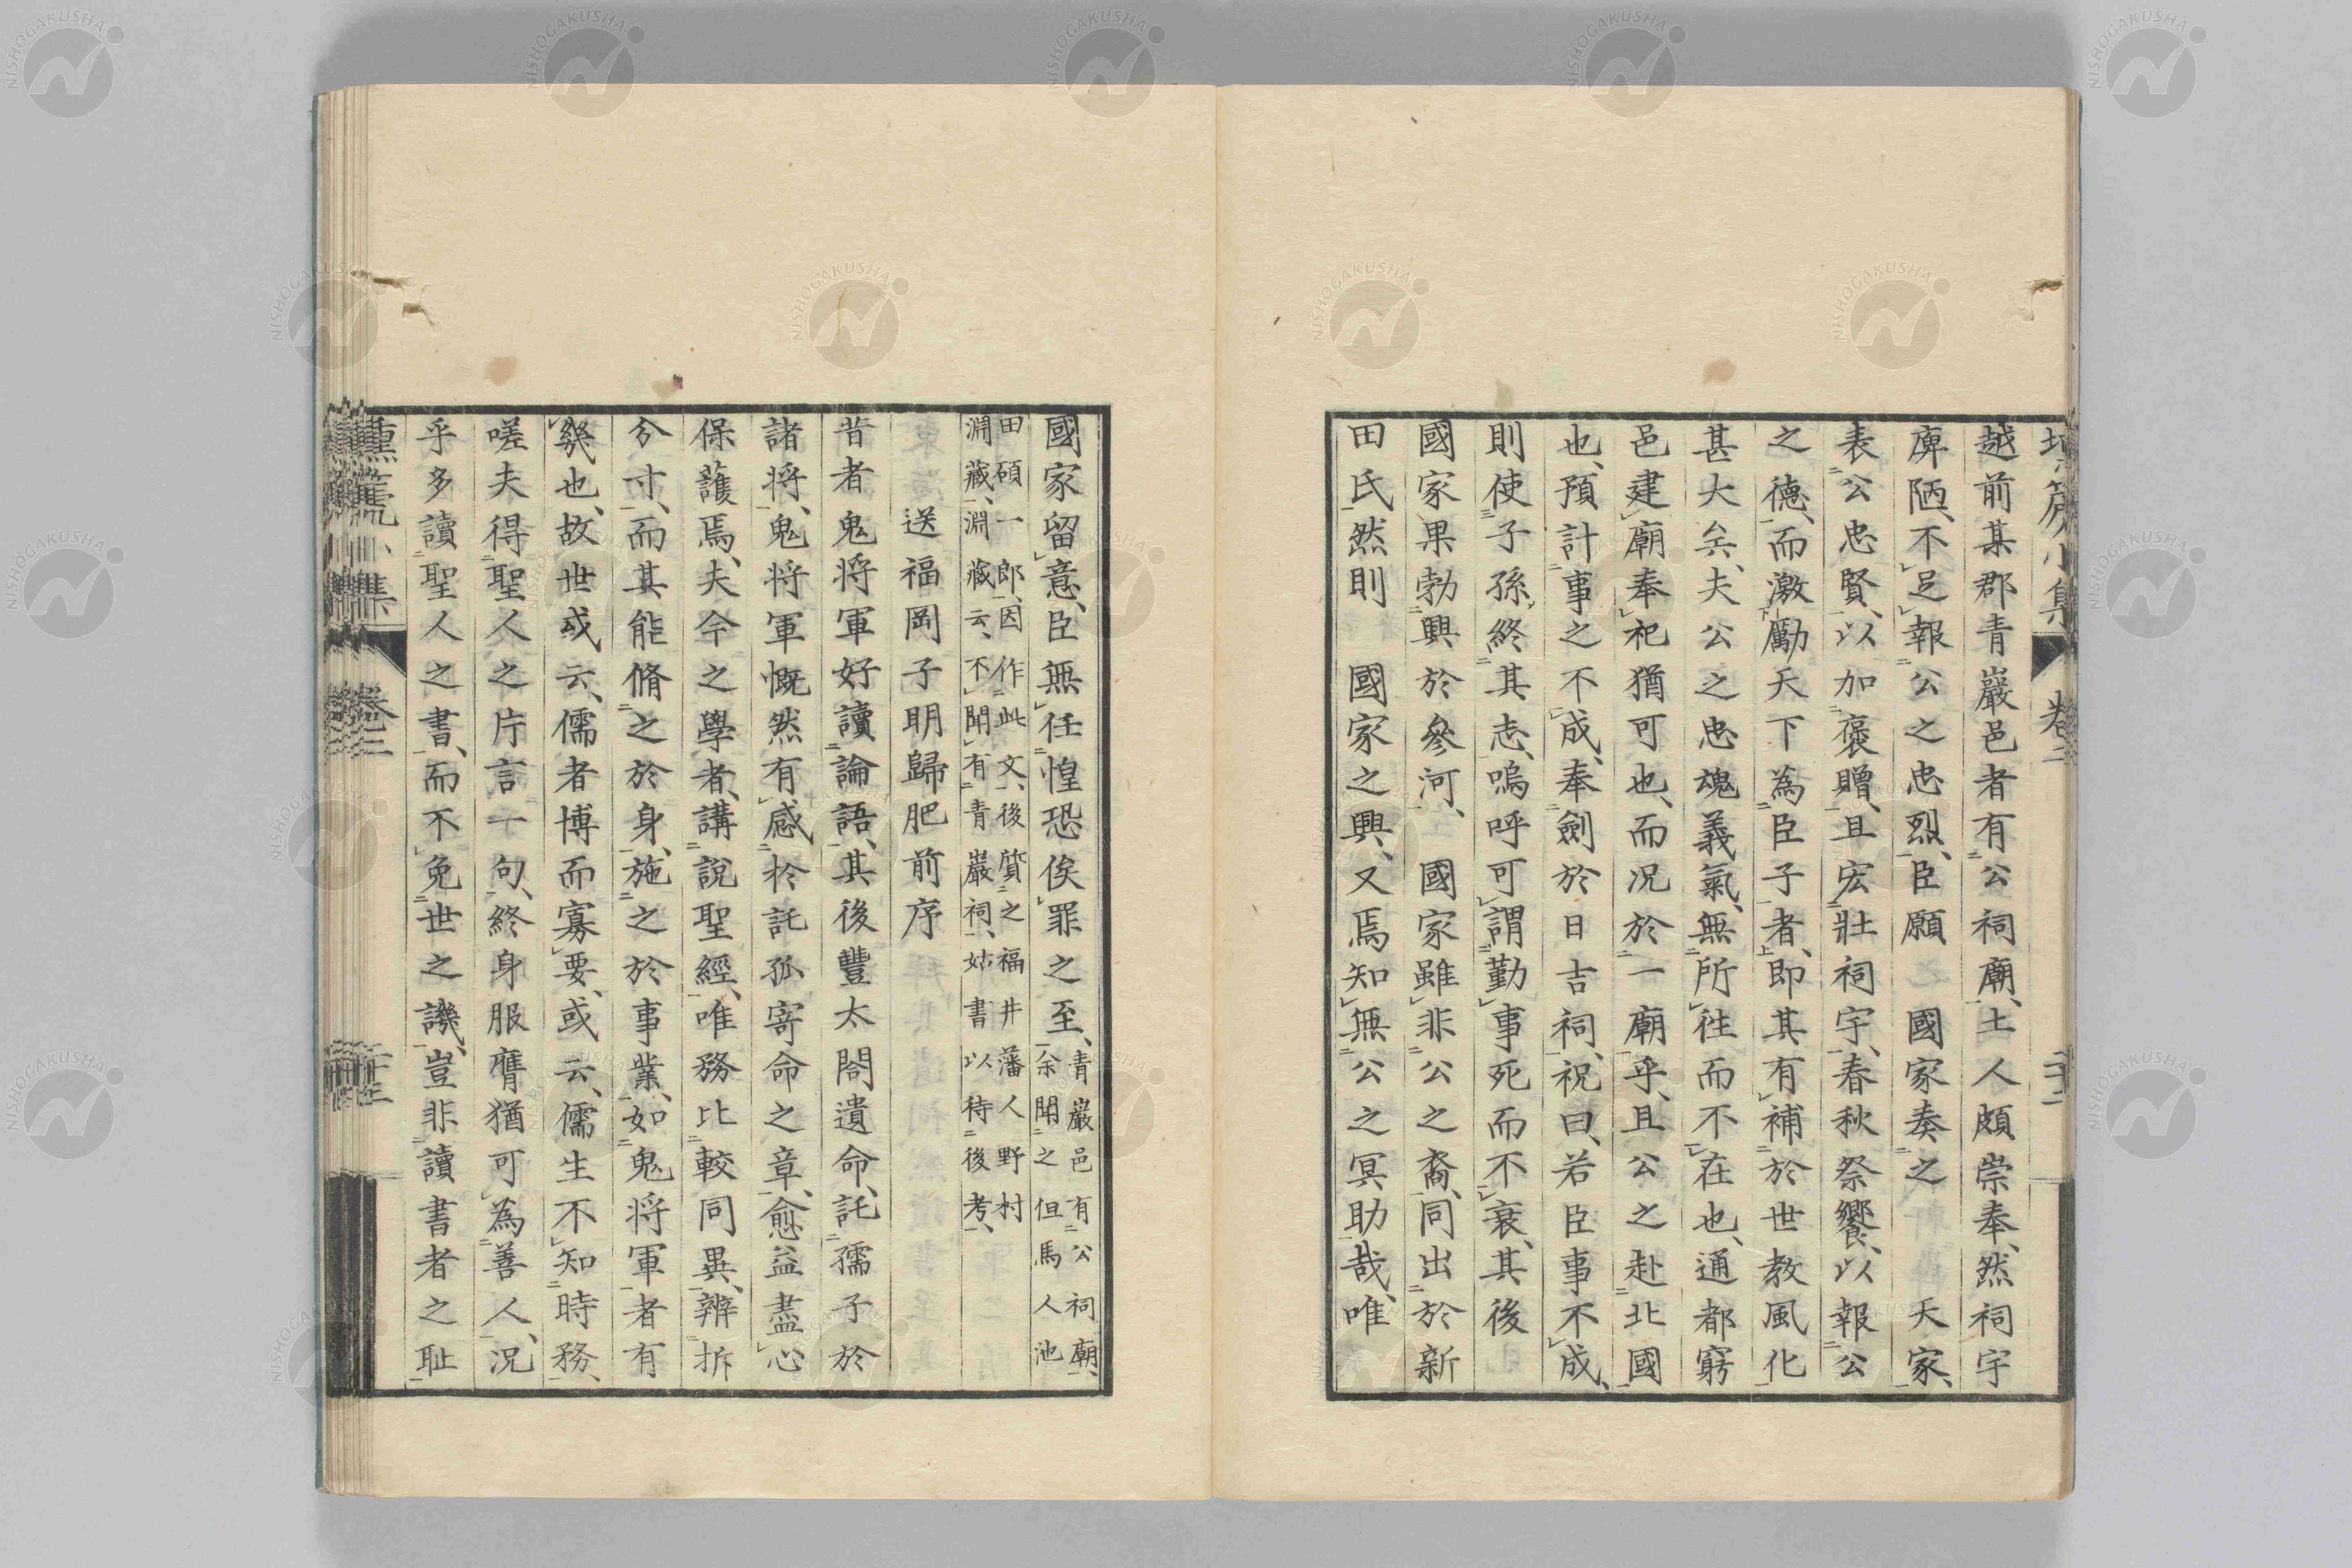 越前某郡青巖邑者有公祠廟、土人頗崇奉、然祠宇
庳陋、不足報公之忠烈、臣願　國家奏之　天家、
表公忠賢、以加褒贈、且宏壯祠宇、春秋祭饗、以報公
之德、而激勵天下為臣子者、即其有補於世教風化
甚大矣、夫公之忠魂義氣、無所往而不在也、通都窮
邑建廟奉祀猶可也、而況於一廟乎、且公之赴北國
也、預計事之不成、奉劍於日吉祠、祝曰、若臣事不成、
則使子孫終其志、嗚呼可謂勤事死而不衰、其後
國家果勃興於參河、　國家雖非公之裔、同出於新
田氏、然則　國家之興、又焉知無公之冥助哉、唯
國家留意、臣無任惶恐俟罪之至、青巖邑有公祠廟、
余聞之但馬人池
田碩一郎、因作此文、後質之福井藩人野村
淵藏、淵藏云、不聞有青巖祠、姑書以待後考、
送福岡子明歸肥前序
昔者鬼將軍好讀論語、其後豐太閤遺命、託孺子於
諸將、鬼將軍慨然有感於託孤寄命之章、愈益盡心
保護焉、夫今之學者、講說聖經、唯務比較同異、辨拆
分寸、而其能脩之於身、施之於事業、如鬼將軍者有
幾也、故世或云、儒者博而寡要、或云、儒生不知時務、
嗟夫得聖人之片言一句、終身服膺猶可為善人、況
乎多讀聖人之書、而不免世之譏、豈非讀書者之耻